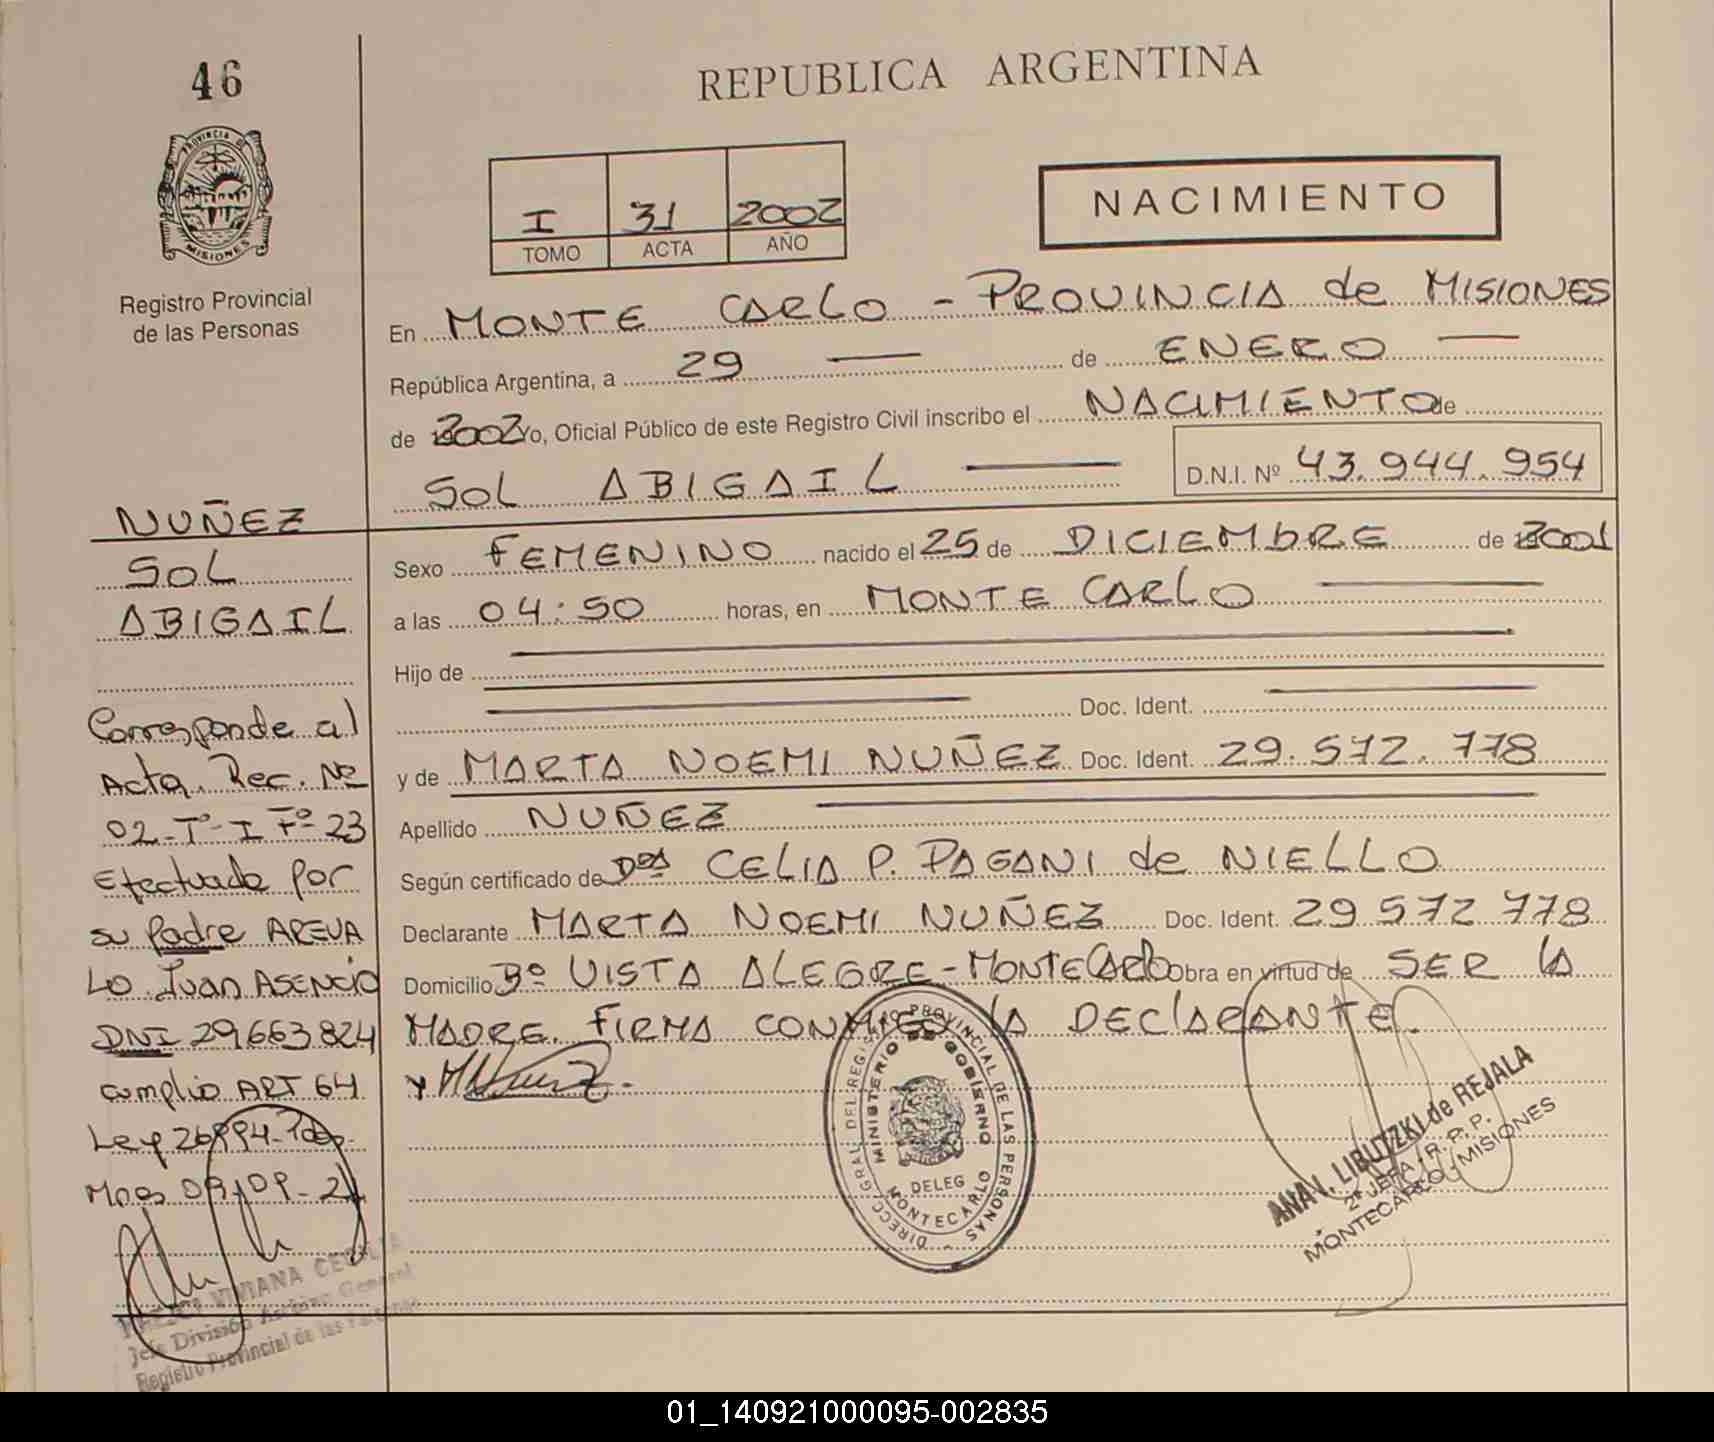 46
REPUBLICA ARGENTINA
PROVINCIA DE
MISIONES
Registro Provincial
de las Personas
I 31 2002
TOMO ACTA AÑO
NACIMIENTO
En MONTE CARLO - PROVINCIA de MISIONES
República Argentina, a 29 — de ENERO —
de 2002 Yo, Oficial Público de este Registro Civil inscribo el NACIMIENTO de
SOL ABIGAIL — D.N.I. Nº 43.944.954
NUÑEZ
SOL
ABIGAIL
Corresponde al
Acta. Rec. Nº
02-Tº-I Fº-23
Efectuada por
su Padre AREVA
LO Juan ASENCIO
DNI 29663824
cumplio ART 64
Ley 26994-
09-21
VIVIANA CECILIA
Jefe División Archivo General
Registro Provincial de las Personas
Sexo FEMENINO nacido el 25 de DICIEMbRE de 2001
a las 04:50 horas, en MONTE CARLO —
Hijo de —
— Doc. Ident. —
y de MARTA NOEMI NUÑEZ Doc. Ident. 29.572.778
Apellido NUÑEZ —
Según certificado de Dra CELIA P. PAGANI de NIELLO
Declarante MARTA NOEMI NUÑEZ Doc. Ident. 29 572 778
Domicilio Bº VISTA ALEGRE-MONTECARLO Obra en virtud de SER LA
MADRE. FIRMA CONMIGO LA DEClARANTE.
DIRECC. GRAL. DEL REGISTRO PROVINCIAL DE LAS PERSONAS
MINISTERIO DE GOBIERNO
DELEG
MONTECARLO
ANA I. LIBUTZKI de REJALA
2ª JEFA - R. P. P.
MONTECARLO - MISIONES
01_140921000095-002835